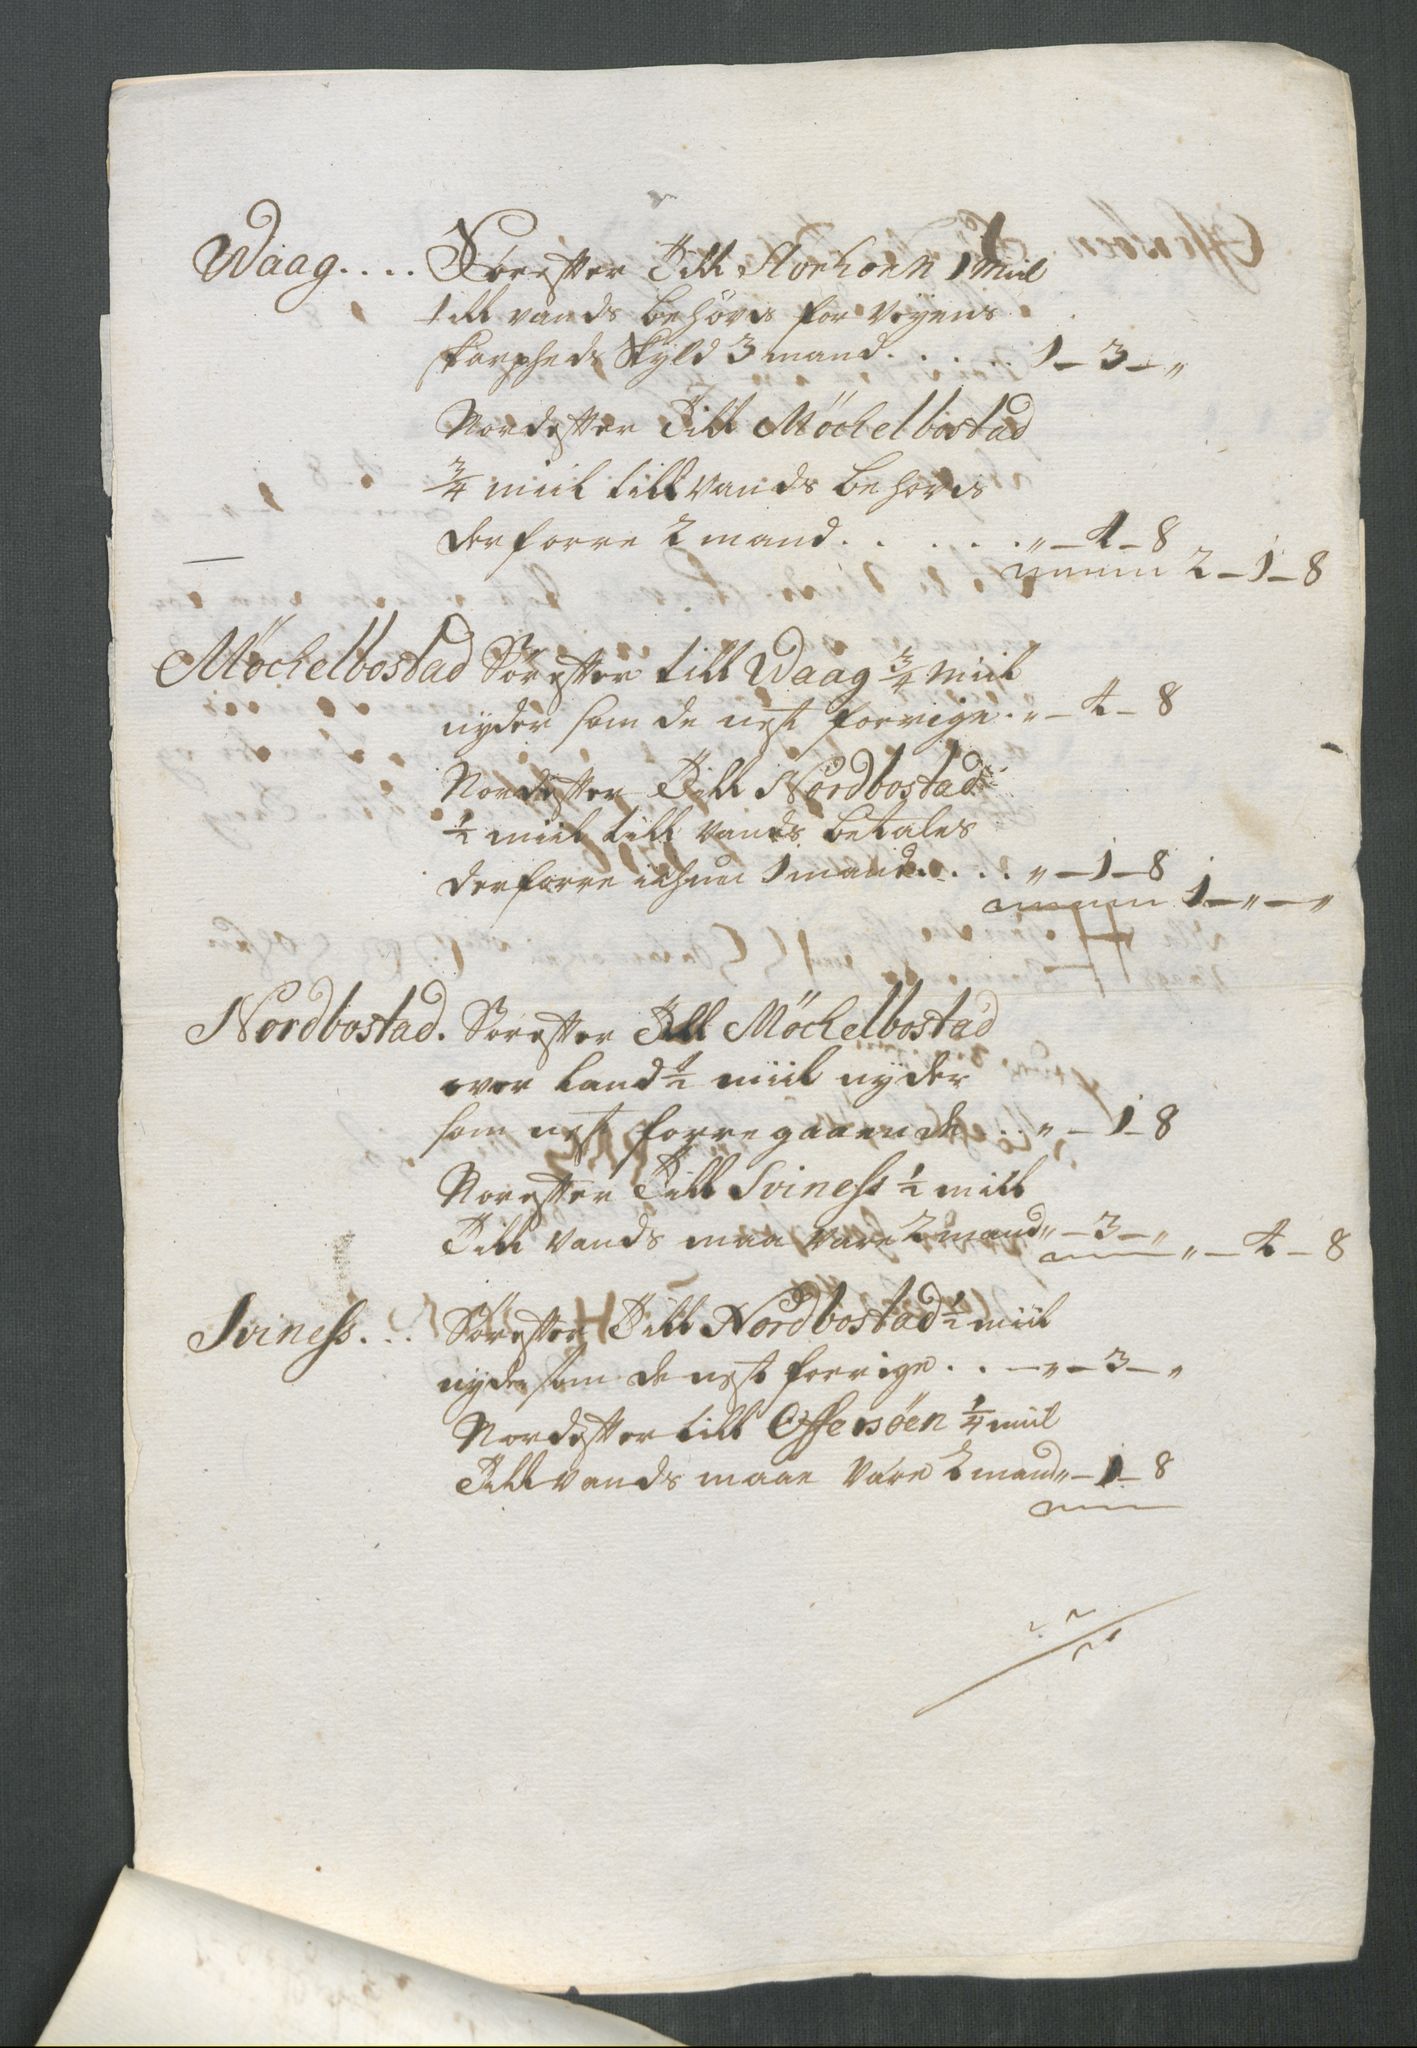 Waag.... Sörester Till Storhoen 1 miil
till vands behövis for veyens
skarpheds skyld 3 mand . . . . . 1 – 3 – „
Nordester Till Möchelbostad
3/4 miil till vands behövis
derforre 2 mand . . . . . . „ – 4 – 8
2 – 1 – 8
Möchelbostad Sörester till Waag 3/4 miil
nyder som de nest forrige . „ – 4 – 8
Nordester Till Nordbostad
1/2 miil till vands betales
derforre ichun 1 mand . . . . „ – 1 – 8
1 – „ – „
Nordbostad. Sörester Till Möchelbostad
over land 1/2 miil nyder
som nest forregaaende . . „ – 1 – 8
Norester Till Sviness 1/2 miil
Till vands maa vare 2 mand „ – 3 – „
„ – 4 – 8
Sviness... Sörester Till Nordbostad 1/2 miil
nyder som de nest forrige . . – „ – 3 – „
Nordester till Offersöen 1/4 miil
Till vands maae vare 2 mand „ – 1 – 8